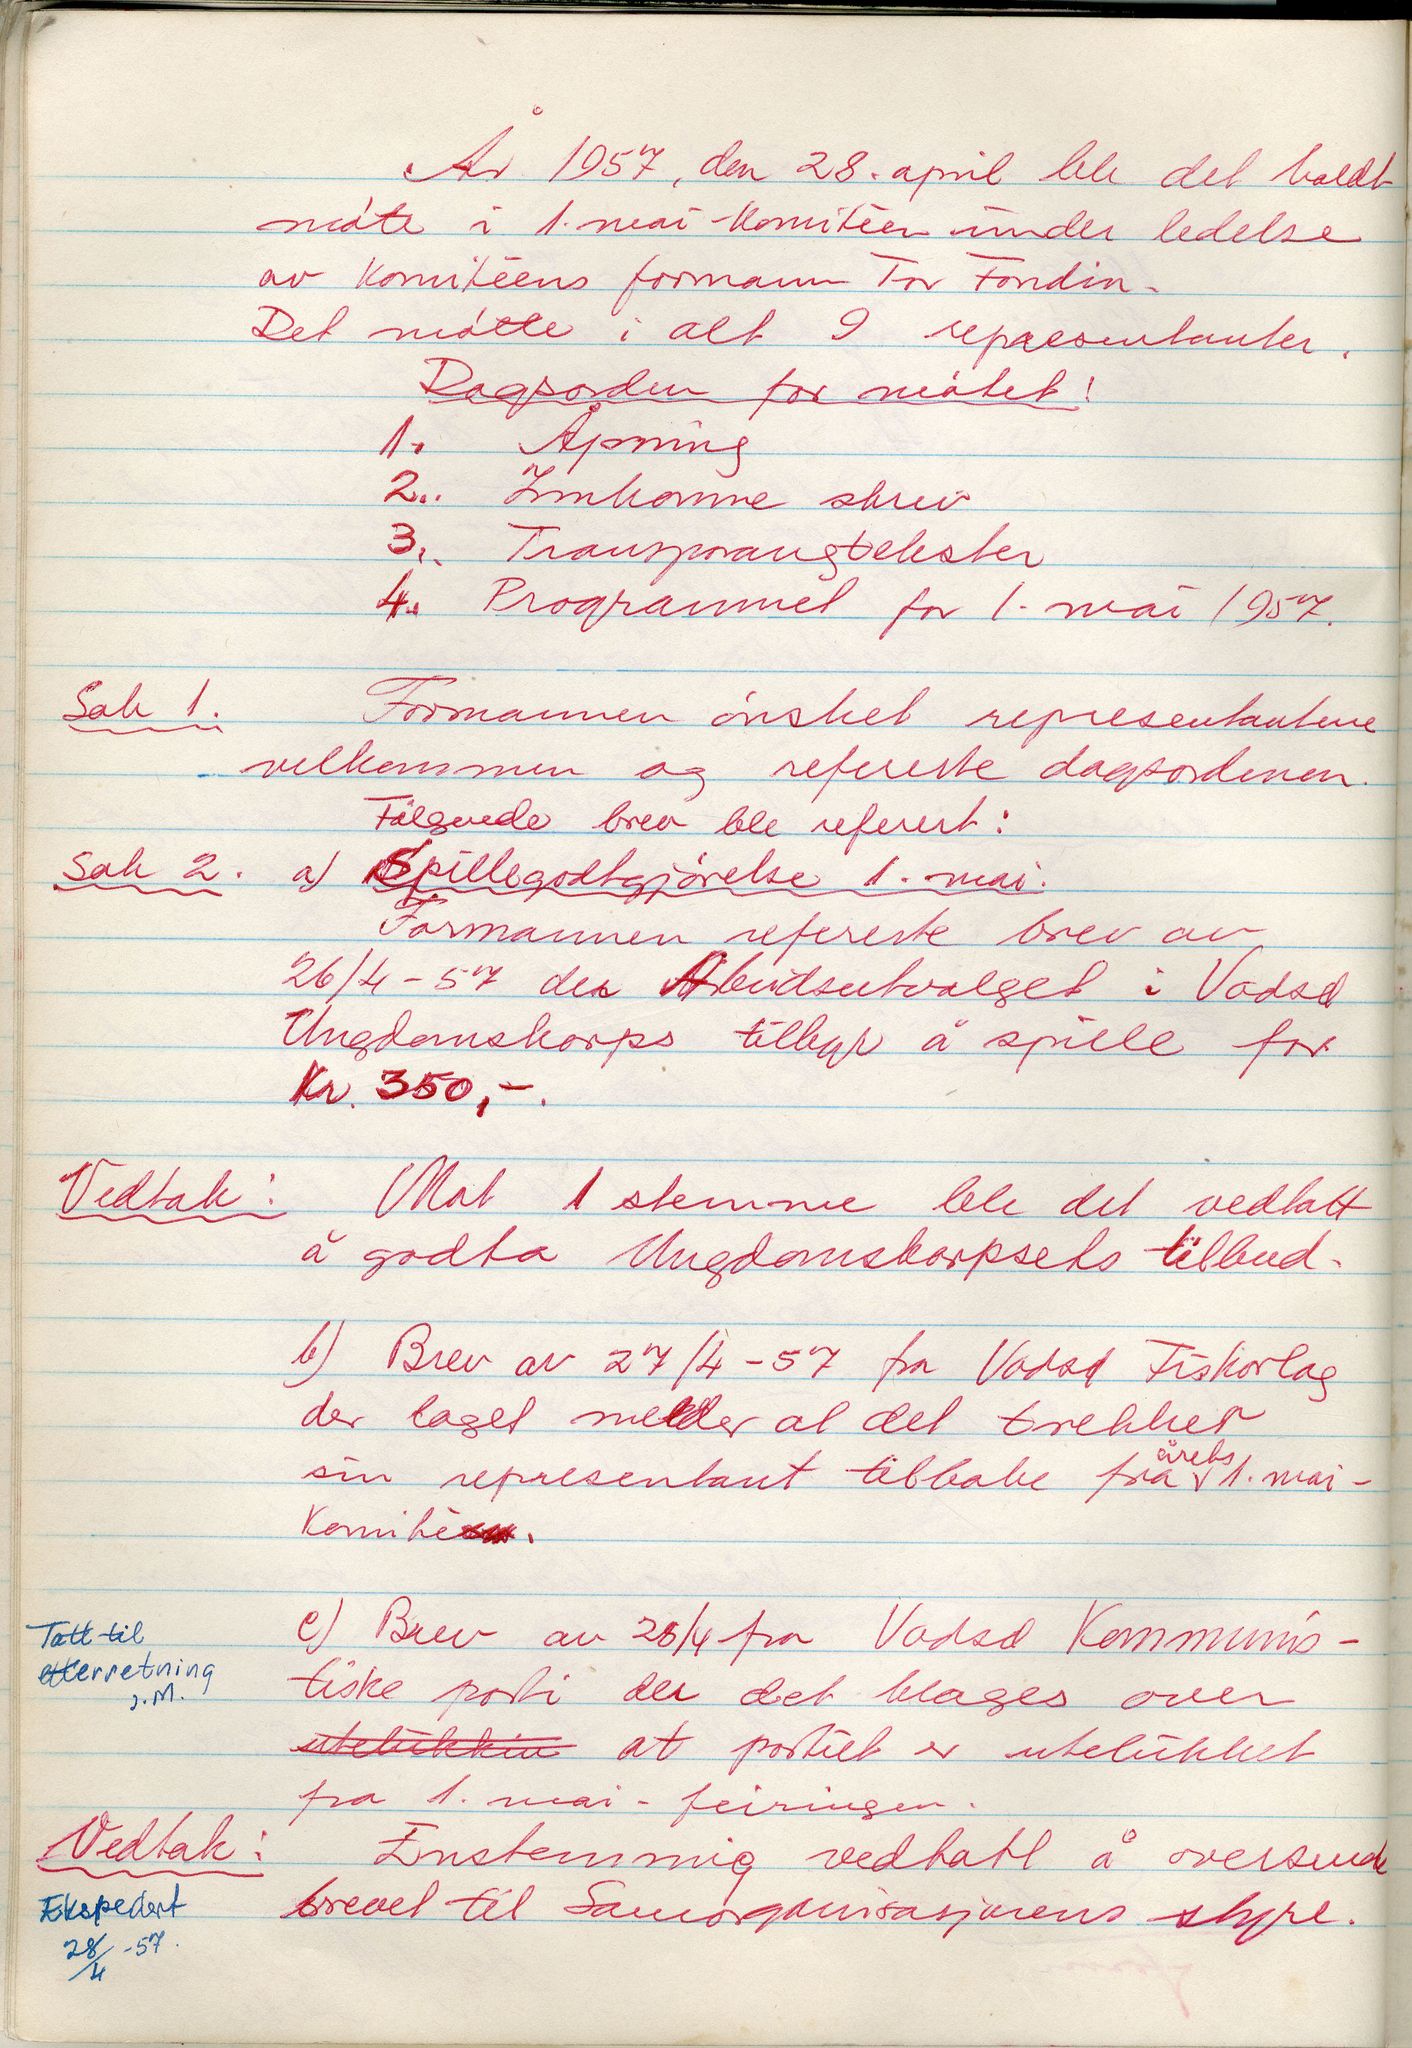 År 1957, den 28. april ble det holdt
møte i 1. mai-Komitéen under ledelse
av Komitéens formann Tor Fondin.
Det møtte i alt 9 representanter.
Dagsorden for møtet!
1. Åpning
2. Innkomne skriv
3. Transparangtekster
4. Programmet for 1. mai 1957.
Sak 1. Formannen ønsket representantene
velkommen og refererte dagsordenen.
Følgende brev ble referert:
Sak 2. a) Spillegodtgjørelse 1. mai.
Formannen refererte brev av
26/4-57 der Arbeidsutvalget i Vadsø
Ungdomskorps tilbyr å spille for
Kr. 350,-.
Vedtak: Mot 1 stemme ble det vedtatt
å godta Ungdomskorpsets tilbud.
b) Brev av 27/4-57 fra Vadsø Fiskarlag
der laget melder at det trekker
sin representant tilbake fra årets 1. mai-
Komité.
Tatt til
etterretning
J.M.
c) Brev av 28/4 fra Vadsø Kommunis-
tiske parti der det klages over
utelukkin at partiet er utelukket
fra 1. mai-feiringen.
Vedtak: Enstemmig vedtatt å oversende
brevet til Samorganisasjonens styre.
Ekspedert
28/4-57.